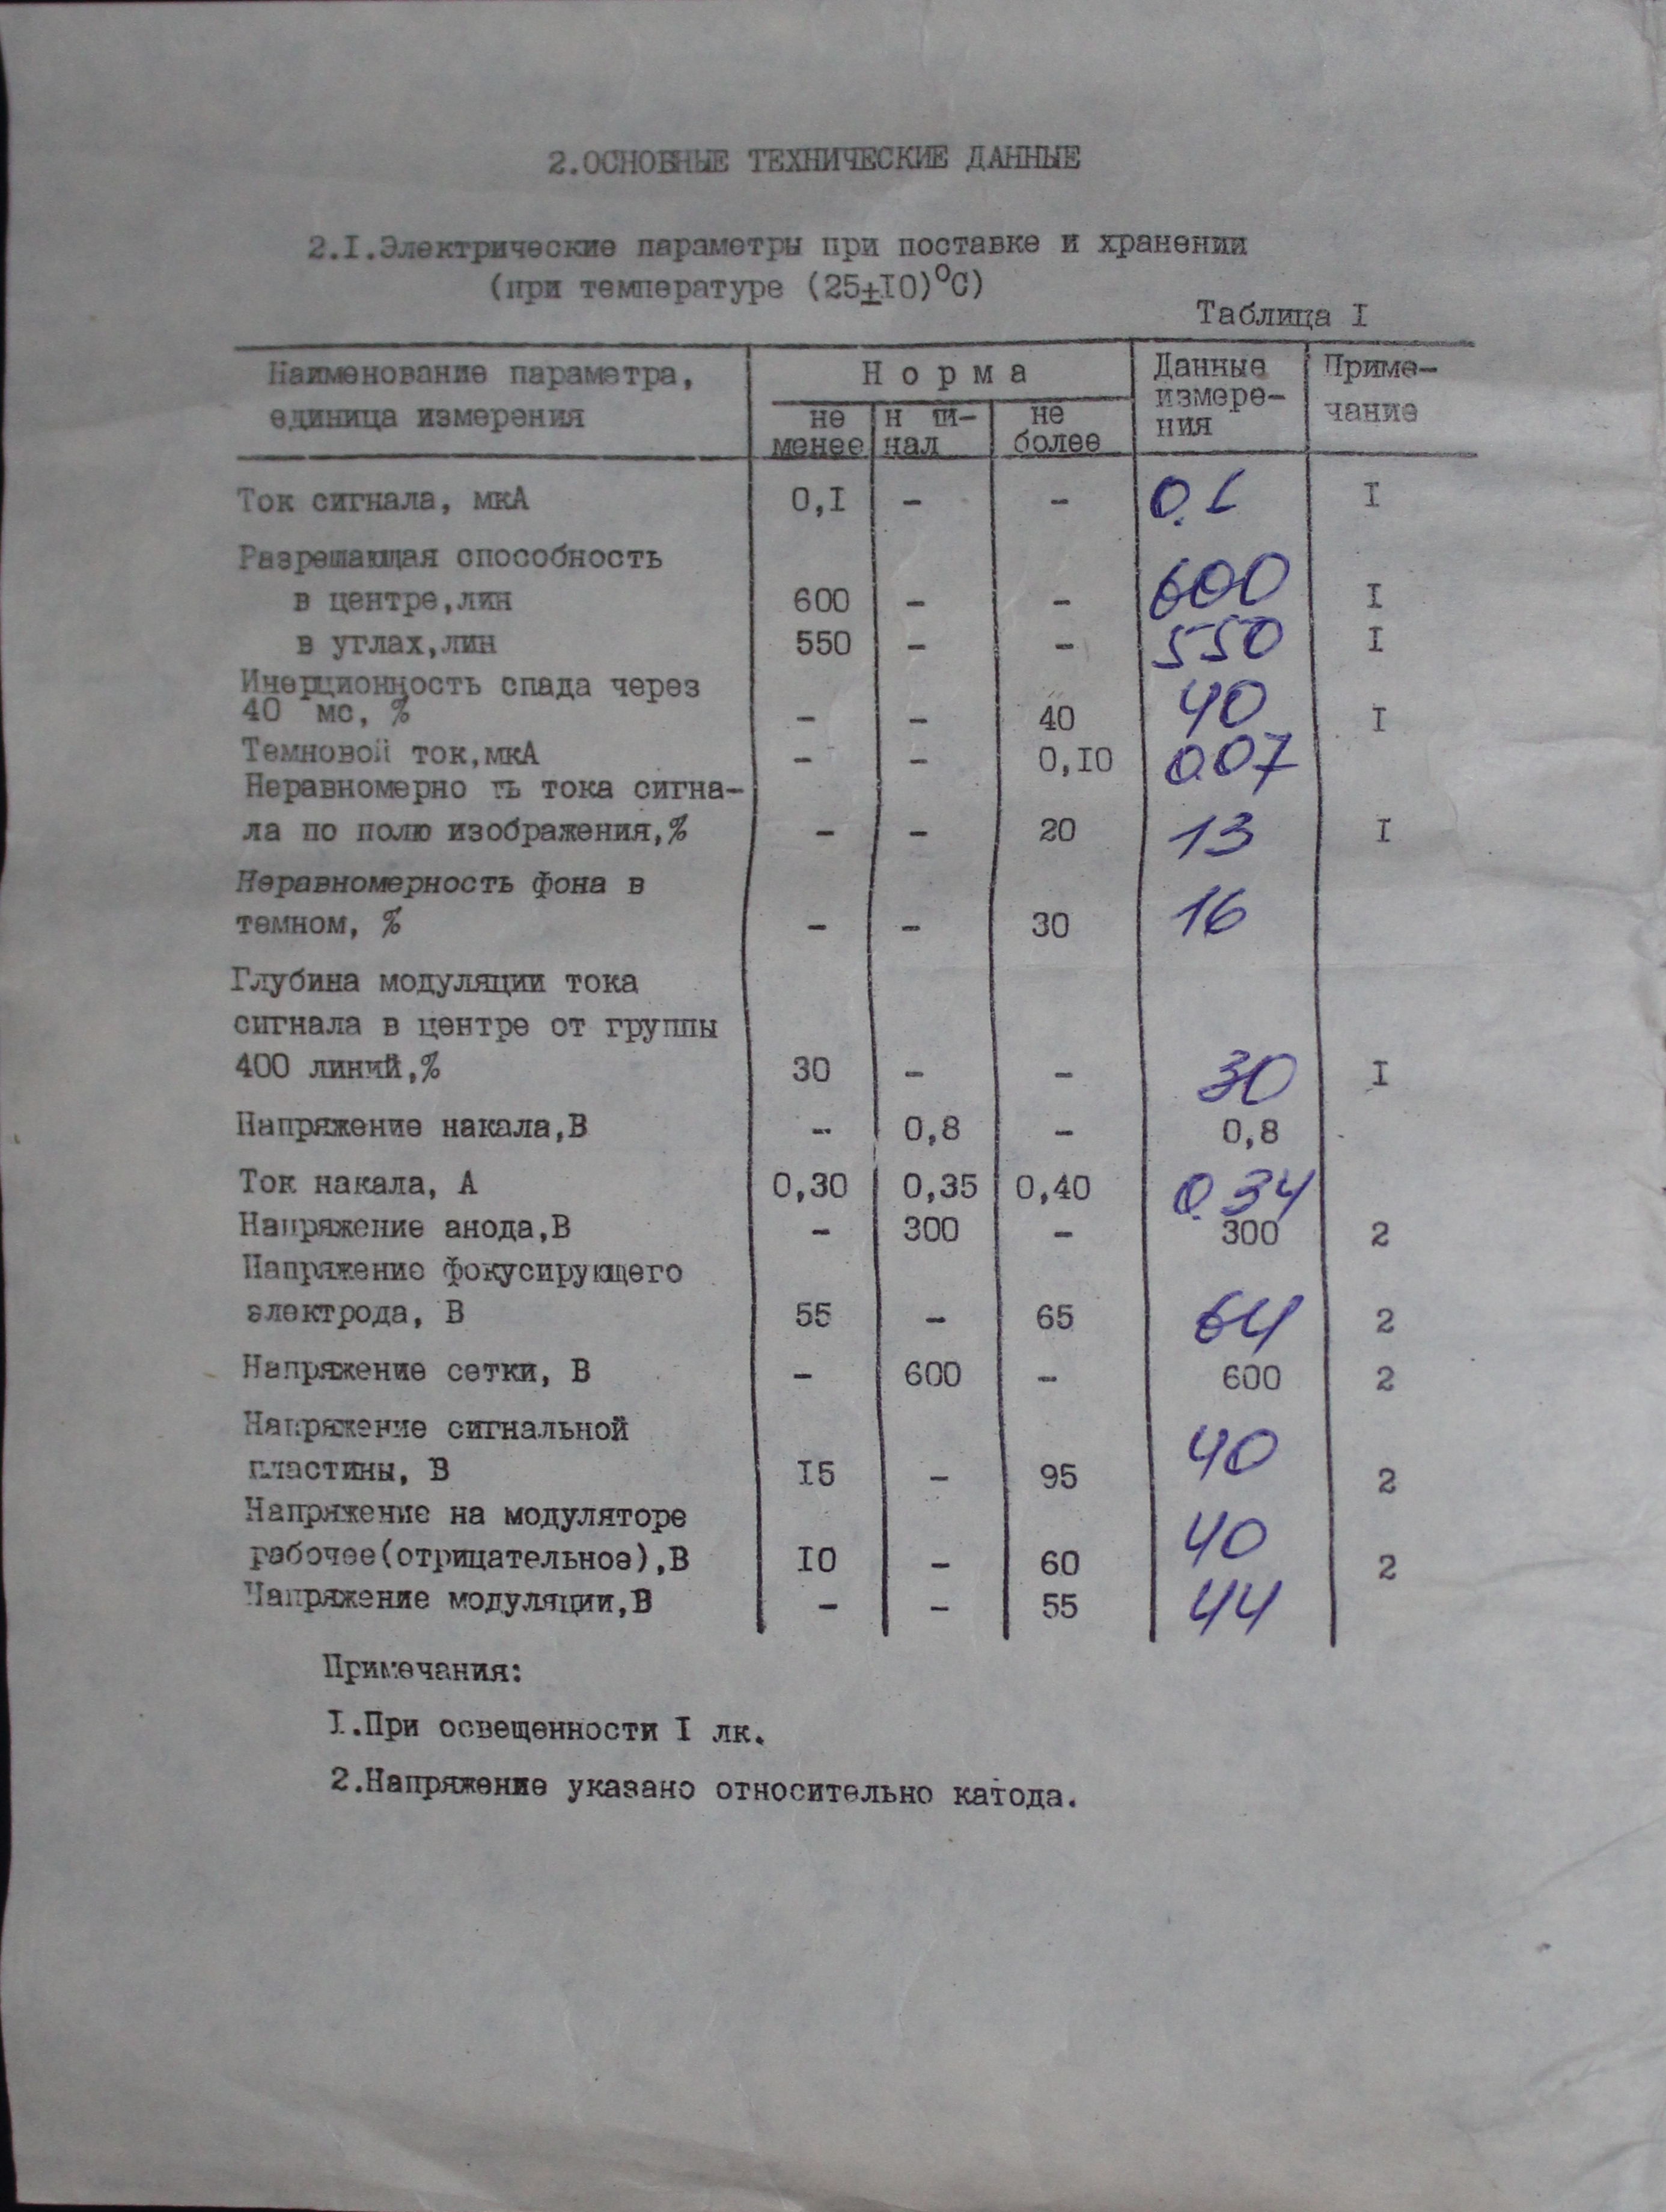 2.ОСНОВНЫЕ ТЕХНИЧЕСКИЕ ДАННЫЕ
2.I.Электрические параметры при поставке и хранении
(при температуре (25±I0)⁰С)
Таблица I
Наименование параметра, Н о р м а Данные Приме-
единица измерения не н ми- не измере- чание
менее нал более ния
Ток сигнала, мкА 0,I - - 0.1 I
Разрешающая способность
в центре,лин 600 - - 600 I
в углах,лин 550 - - 550 I
Инерционность спада через
40 мс, % - - 40 40 I
Темновой ток,мкА - - 0,I0 0.07
Неравномерно ть тока сигна-
ла по полю изображения,% - - 20 13 I
Неравномерность фона в
темном, % - - 30 16
Глубина модуляции тока
сигнала в центре от группы
400 линий,% 30 - - 30 I
Напряжение накала,В - 0,8 - 0,8
Ток накала, А 0,30 0,35 0,40 0.34
Напряжение анода,В - 300 - 300 2
Напряжение фокусирующего
электрода, В 55 - 65 64 2
Напряжение сетки, В - 600 - 600 2
Напряжение сигнальной
пластины, В I5 - 95 40 2
Напряжение на модуляторе
рабочее(отрицательное),В I0 - 60 40 2
Напряжение модуляции,В - - 55 44
Примечания:
I.При освещенности I лк.
2.Напряжение указано относительно катода.